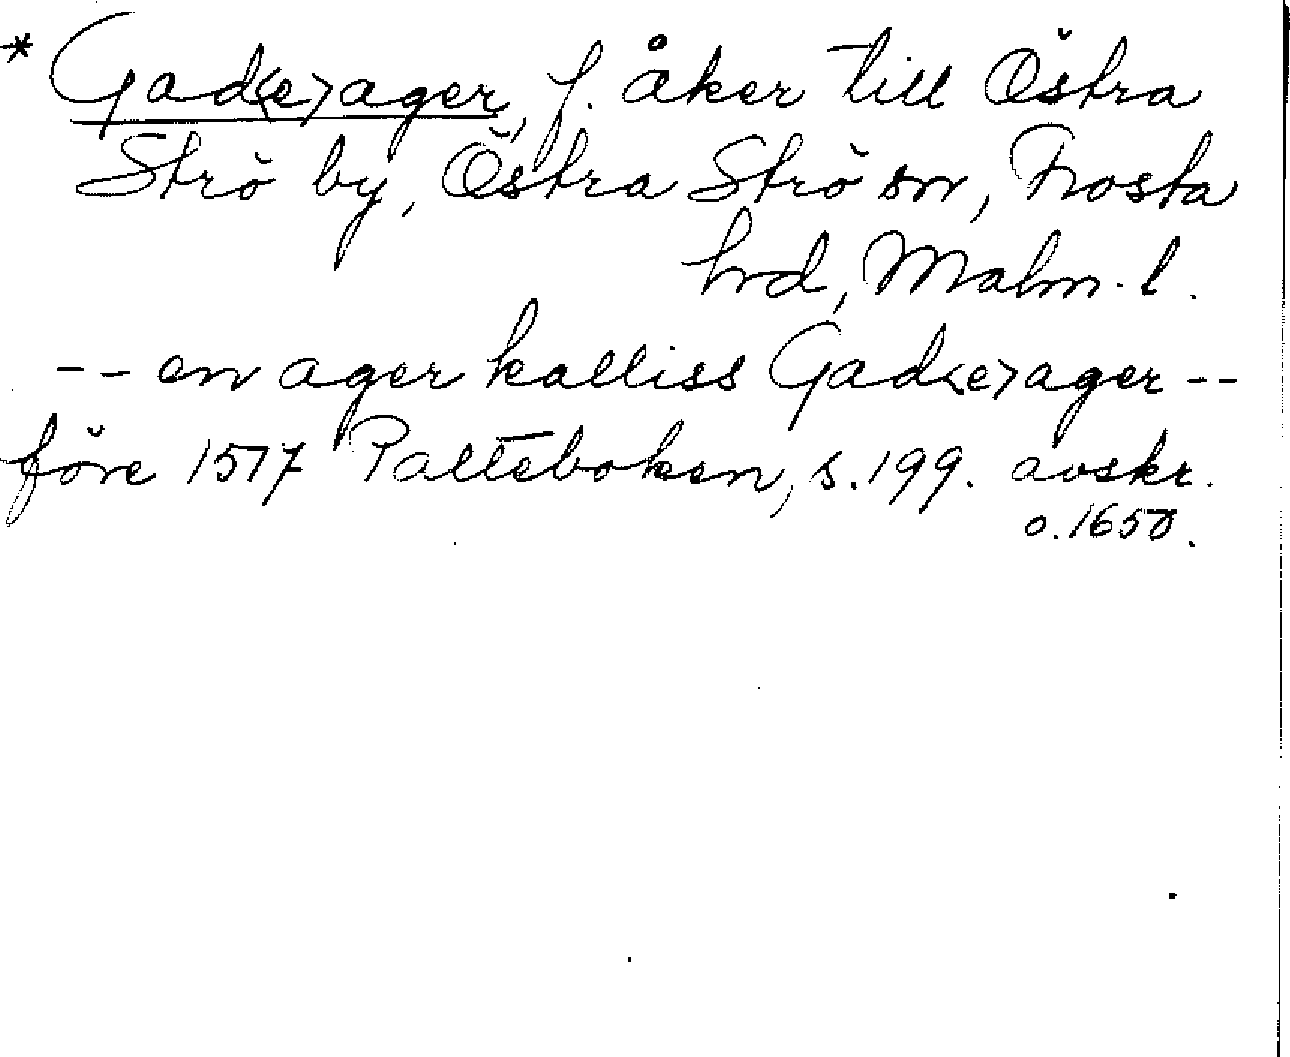 * Gad<e>ager, f. åker till Östra
Strö by, Östra Strö sn, Frosta
hrd, Malm. l.
-- en ager kalliss Gad<e>ager --
före 1517 Palteboken, s. 199. avskr.
o. 1650.